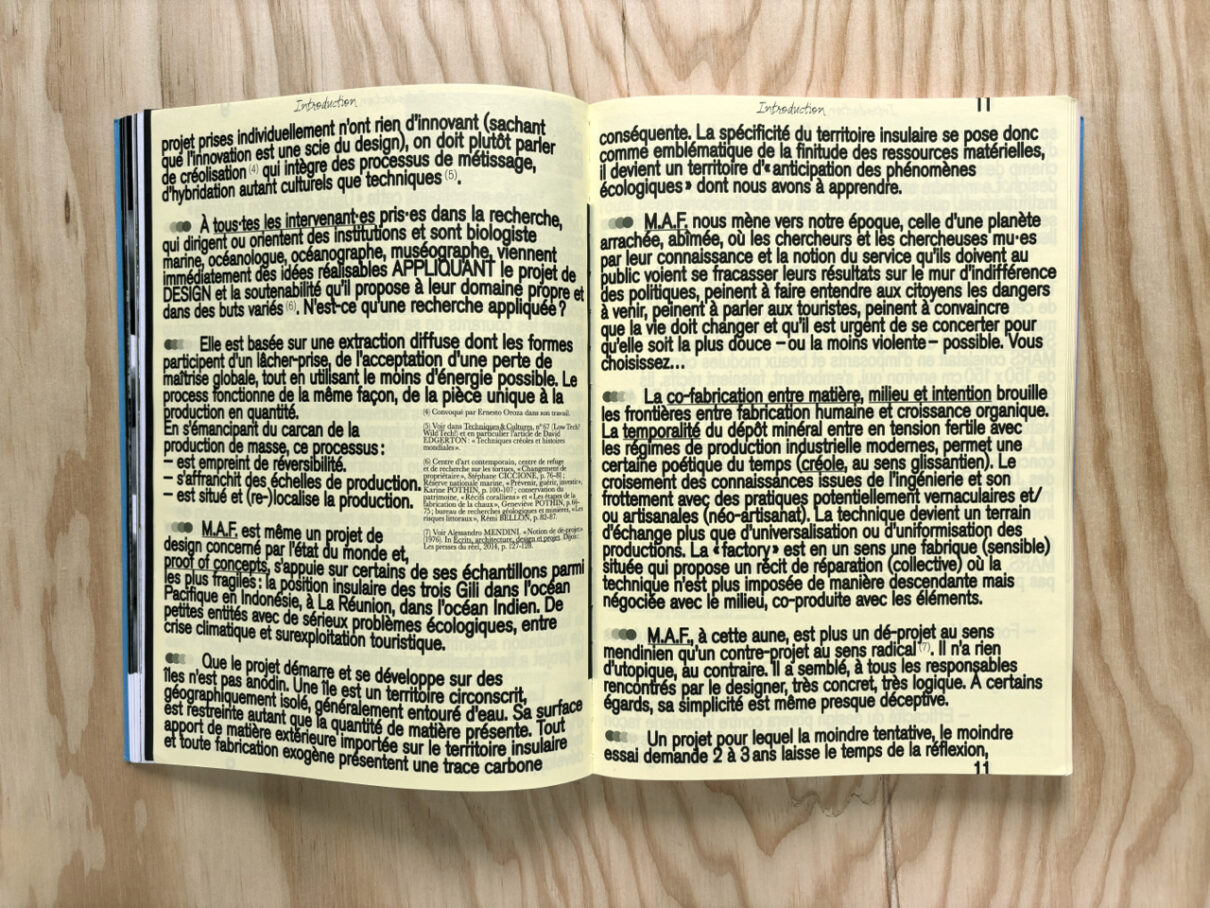 Introduction
projet prises individuellement n'ont rien d'innovant (sachant
que l'innovation est une scie du design), on doit plutôt parler
de créolisation (4) qui intègre des processus de métissage,
d'hybridation autant culturels que techniques (5).
À tous·tes les intervenant·es pris·es dans la recherche,
qui dirigent ou orientent des institutions et sont biologiste
marine, océanologue, océanographe, muséographe, viennent
immédiatement des idées réalisables APPLIQUANT le projet de
DESIGN et la soutenabilité qu'il propose à leur domaine propre et
dans des buts variés (6). N'est-ce qu'une recherche appliquée ?
Elle est basée sur une extraction diffuse dont les formes
participent d'un lâcher-prise, de l'acceptation d'une perte de
maîtrise globale, tout en utilisant le moins d'énergie possible. Le
process fonctionne de la même façon, de la pièce unique à la
production en quantité.
En s'émancipant du carcan de la
production de masse, ce processus :
– est empreint de réversibilité.
– s'affranchit des échelles de production.
– est situé et (re-)localise la production.
M.A.F. est même un projet de
design concerné par l'état du monde et,
proof of concepts, s'appuie sur certains de ses échantillons parmi
les plus fragiles : la position insulaire des trois Gili dans l'océan
Pacifique en Indonésie, à La Réunion, dans l'océan Indien. De
petites entités avec de sérieux problèmes écologiques, entre
crise climatique et surexploitation touristique.
Que le projet démarre et se développe sur des
îles n'est pas anodin. Une île est un territoire circonscrit,
géographiquement isolé, généralement entouré d'eau. Sa surface
est restreinte autant que la quantité de matière présente. Tout
apport de matière extérieure importée sur le territoire insulaire
et toute fabrication exogène présentent une trace carbone
(4) Convoqué par Ernesto Oroza dans son travail.
(5) Voir dans Techniques & Cultures, n° 67 (Low Tech?
Wild Tech!) et en particulier l'article de David
EDGERTON : « Techniques créoles et histoires
mondiales ».
(6) Centre d'art contemporain, centre de refuge
et de recherche sur les tortues, « Changement de
propriétaire », Stéphane CICCIONE, p. 76-81 ;
Réserve nationale marine, « Prévenir, guérir, inventer »,
Karine POTHIN, p. 100-107 ; conservation du
patrimoine, « Récifs coralliens » et « Les étapes de la
fabrication de la chaux », Geneviève POTHIN, p. 66-
75 ; bureau de recherches géologiques et minières, « Les
risques littoraux », Rémi BELLON, p. 82-87.
(7) Voir Alessandro MENDINI, « Notion de dé-projet »
[1976]. In Écrits, architecture, design et projet. Dijon :
Les presses du réel, 2014, p. 127-128.
Introduction
11
conséquente. La spécificité du territoire insulaire se pose donc
comme emblématique de la finitude des ressources matérielles,
il devient un territoire d'« anticipation des phénomènes
écologiques » dont nous avons à apprendre.
M.A.F. nous mène vers notre époque, celle d'une planète
arrachée, abîmée, où les chercheurs et les chercheuses mu·es
par leur connaissance et la notion du service qu'ils doivent au
public voient se fracasser leurs résultats sur le mur d'indifférence
des politiques, peinent à faire entendre aux citoyens les dangers
à venir, peinent à parler aux touristes, peinent à convaincre
que la vie doit changer et qu'il est urgent de se concerter pour
qu'elle soit la plus douce – ou la moins violente – possible. Vous
choisissez…
La co-fabrication entre matière, milieu et intention brouille
les frontières entre fabrication humaine et croissance organique.
La temporalité du dépôt minéral entre en tension fertile avec
les régimes de production industrielle modernes, permet une
certaine poétique du temps (créole, au sens glissantien). Le
croisement des connaissances issues de l'ingénierie et son
frottement avec des pratiques potentiellement vernaculaires et/
ou artisanales (néo-artisanat). La technique devient un terrain
d'échange plus que d'universalisation ou d'uniformisation des
productions. La « factory » est en un sens une fabrique (sensible)
située qui propose un récit de réparation (collective) où la
technique n'est plus imposée de manière descendante mais
négociée avec le milieu, co-produite avec les éléments.
M.A.F., à cette aune, est plus un dé-projet au sens
mendinien qu'un contre-projet au sens radical (7). Il n'a rien
d'utopique, au contraire. Il a semblé, à tous les responsables
rencontrés par le designer, très concret, très logique. À certains
égards, sa simplicité est même presque déceptive.
Un projet pour lequel la moindre tentative, le moindre
essai demande 2 à 3 ans laisse le temps de la réflexion,
11